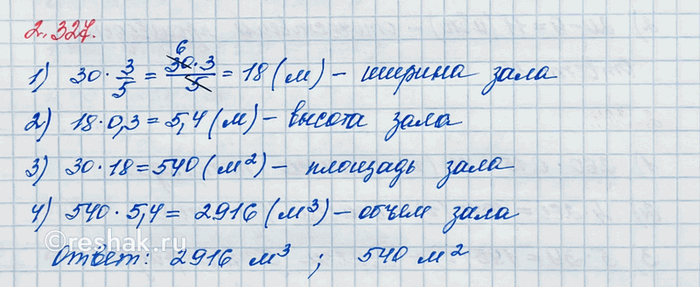 2.327.
1) 30 · 3/5 = 30 · 3/5 = 18 (м) – ширина зала
6
2) 18 · 0,3 = 5,4 (м) – высота зала
3) 30 · 18 = 540 (м²) – площадь зала
4) 540 · 5,4 = 2916 (м³) – объем зала
Ответ: 2916 м³ ; 540 м²
©reshak.ru